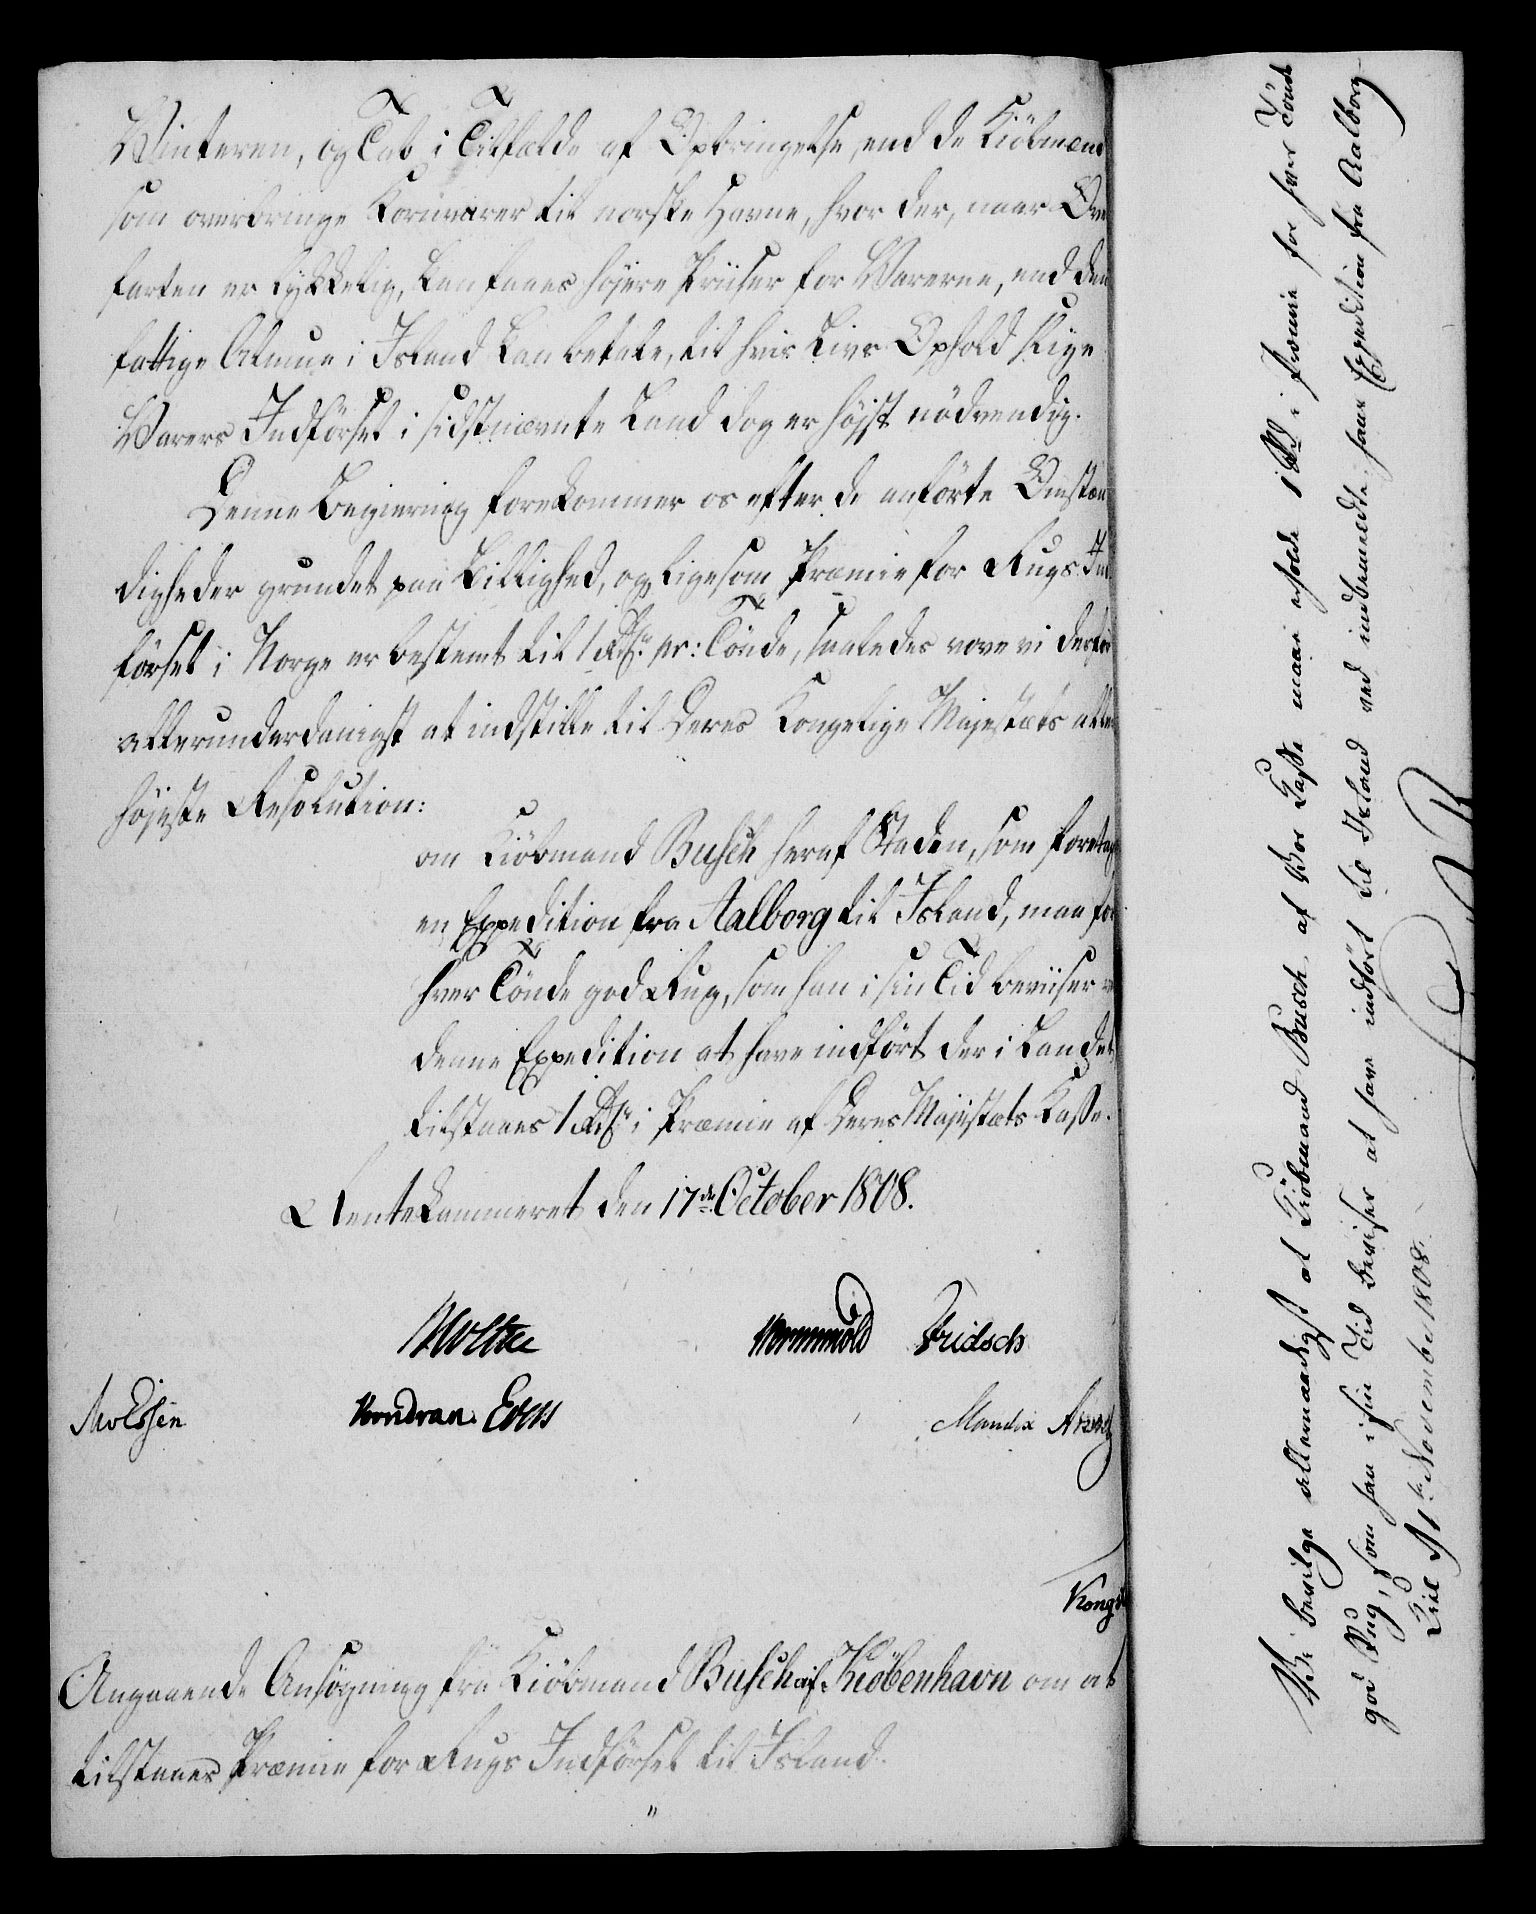 Winteren, og Tab i Tilfælde af Opbringelse, end de Kiöbmænd
som overbringe Kornvarer til norske Havne, hvor der, naar Over
farten er lykkelig, kan faaes höjere Priser for Varerne, end den
fattige Almue i Island kan betale, til hvis Livs Ophold slige
Varers Indförsel i sidstnævnte Land dog er höjst nödvendig.
Denne Begiering forekommer os efter de anförte Omstæn
digheder grundet paa Billighed, og ligesom Præmie for Rugs Ind
förset i Norge er bestemt til 1 Rdlr pr: Tönde, saaledes vove vi derfor
allerunderdanigst at indstille til Deres Kongelige Majestæts aller
höjeste Resolution:
om Kiöbmand Busch her af Staden, som foretager
en Expedition fra Aalborg til Island, maa for
hver Tönde god Rug, som han i sin Tid beviiser ved
denne Expedition at have indfört der i Landet
tilstaaes 1 Rdlr i Præmie af Deres Majestæts Kasse.
Rentekammeret den 17de October 1808.
Moltke Wormskiold Fridsch
Knudsen Evers Mandix
Kongel
Angaaende Ansögning fra Kiöbmand Busch af Kiöbenhavn om at
tilstaaes Præmie for Rugs Indförsel til Island.
"
Vi bevilge allernaadigst at Kiöbmand Busch af Vor Kasse maae erholde 1 Rd i Præmie for hver Tönde
god Rug, som han i sin Tid beviser at have indfört til Island ved indbemeldte hans Expedition fra Aalborg
Kiel November 1808.